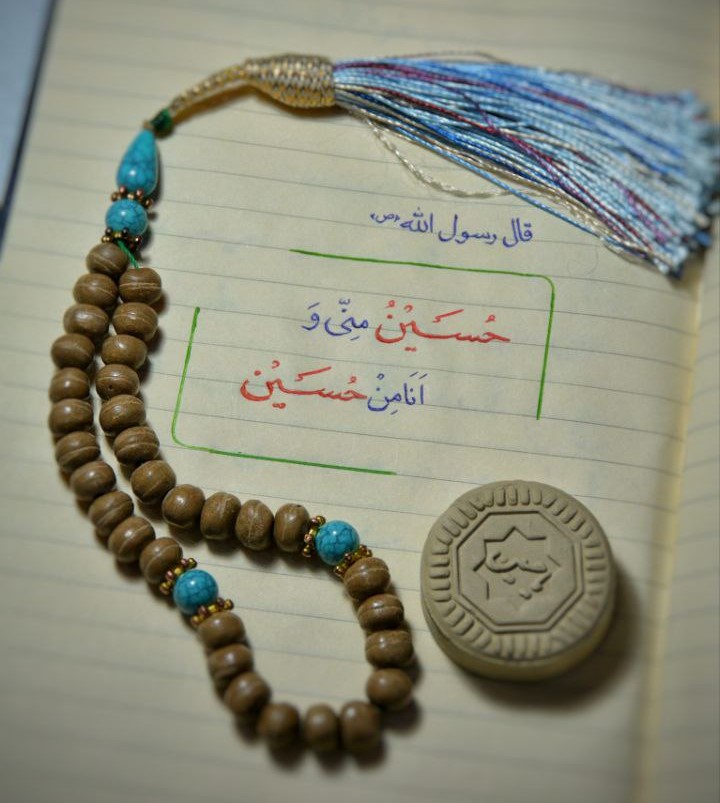 قال رسول الله (ص)
حُسَیْنُ مِنّی وَ
اَنَا مِنْ حُسَیْن